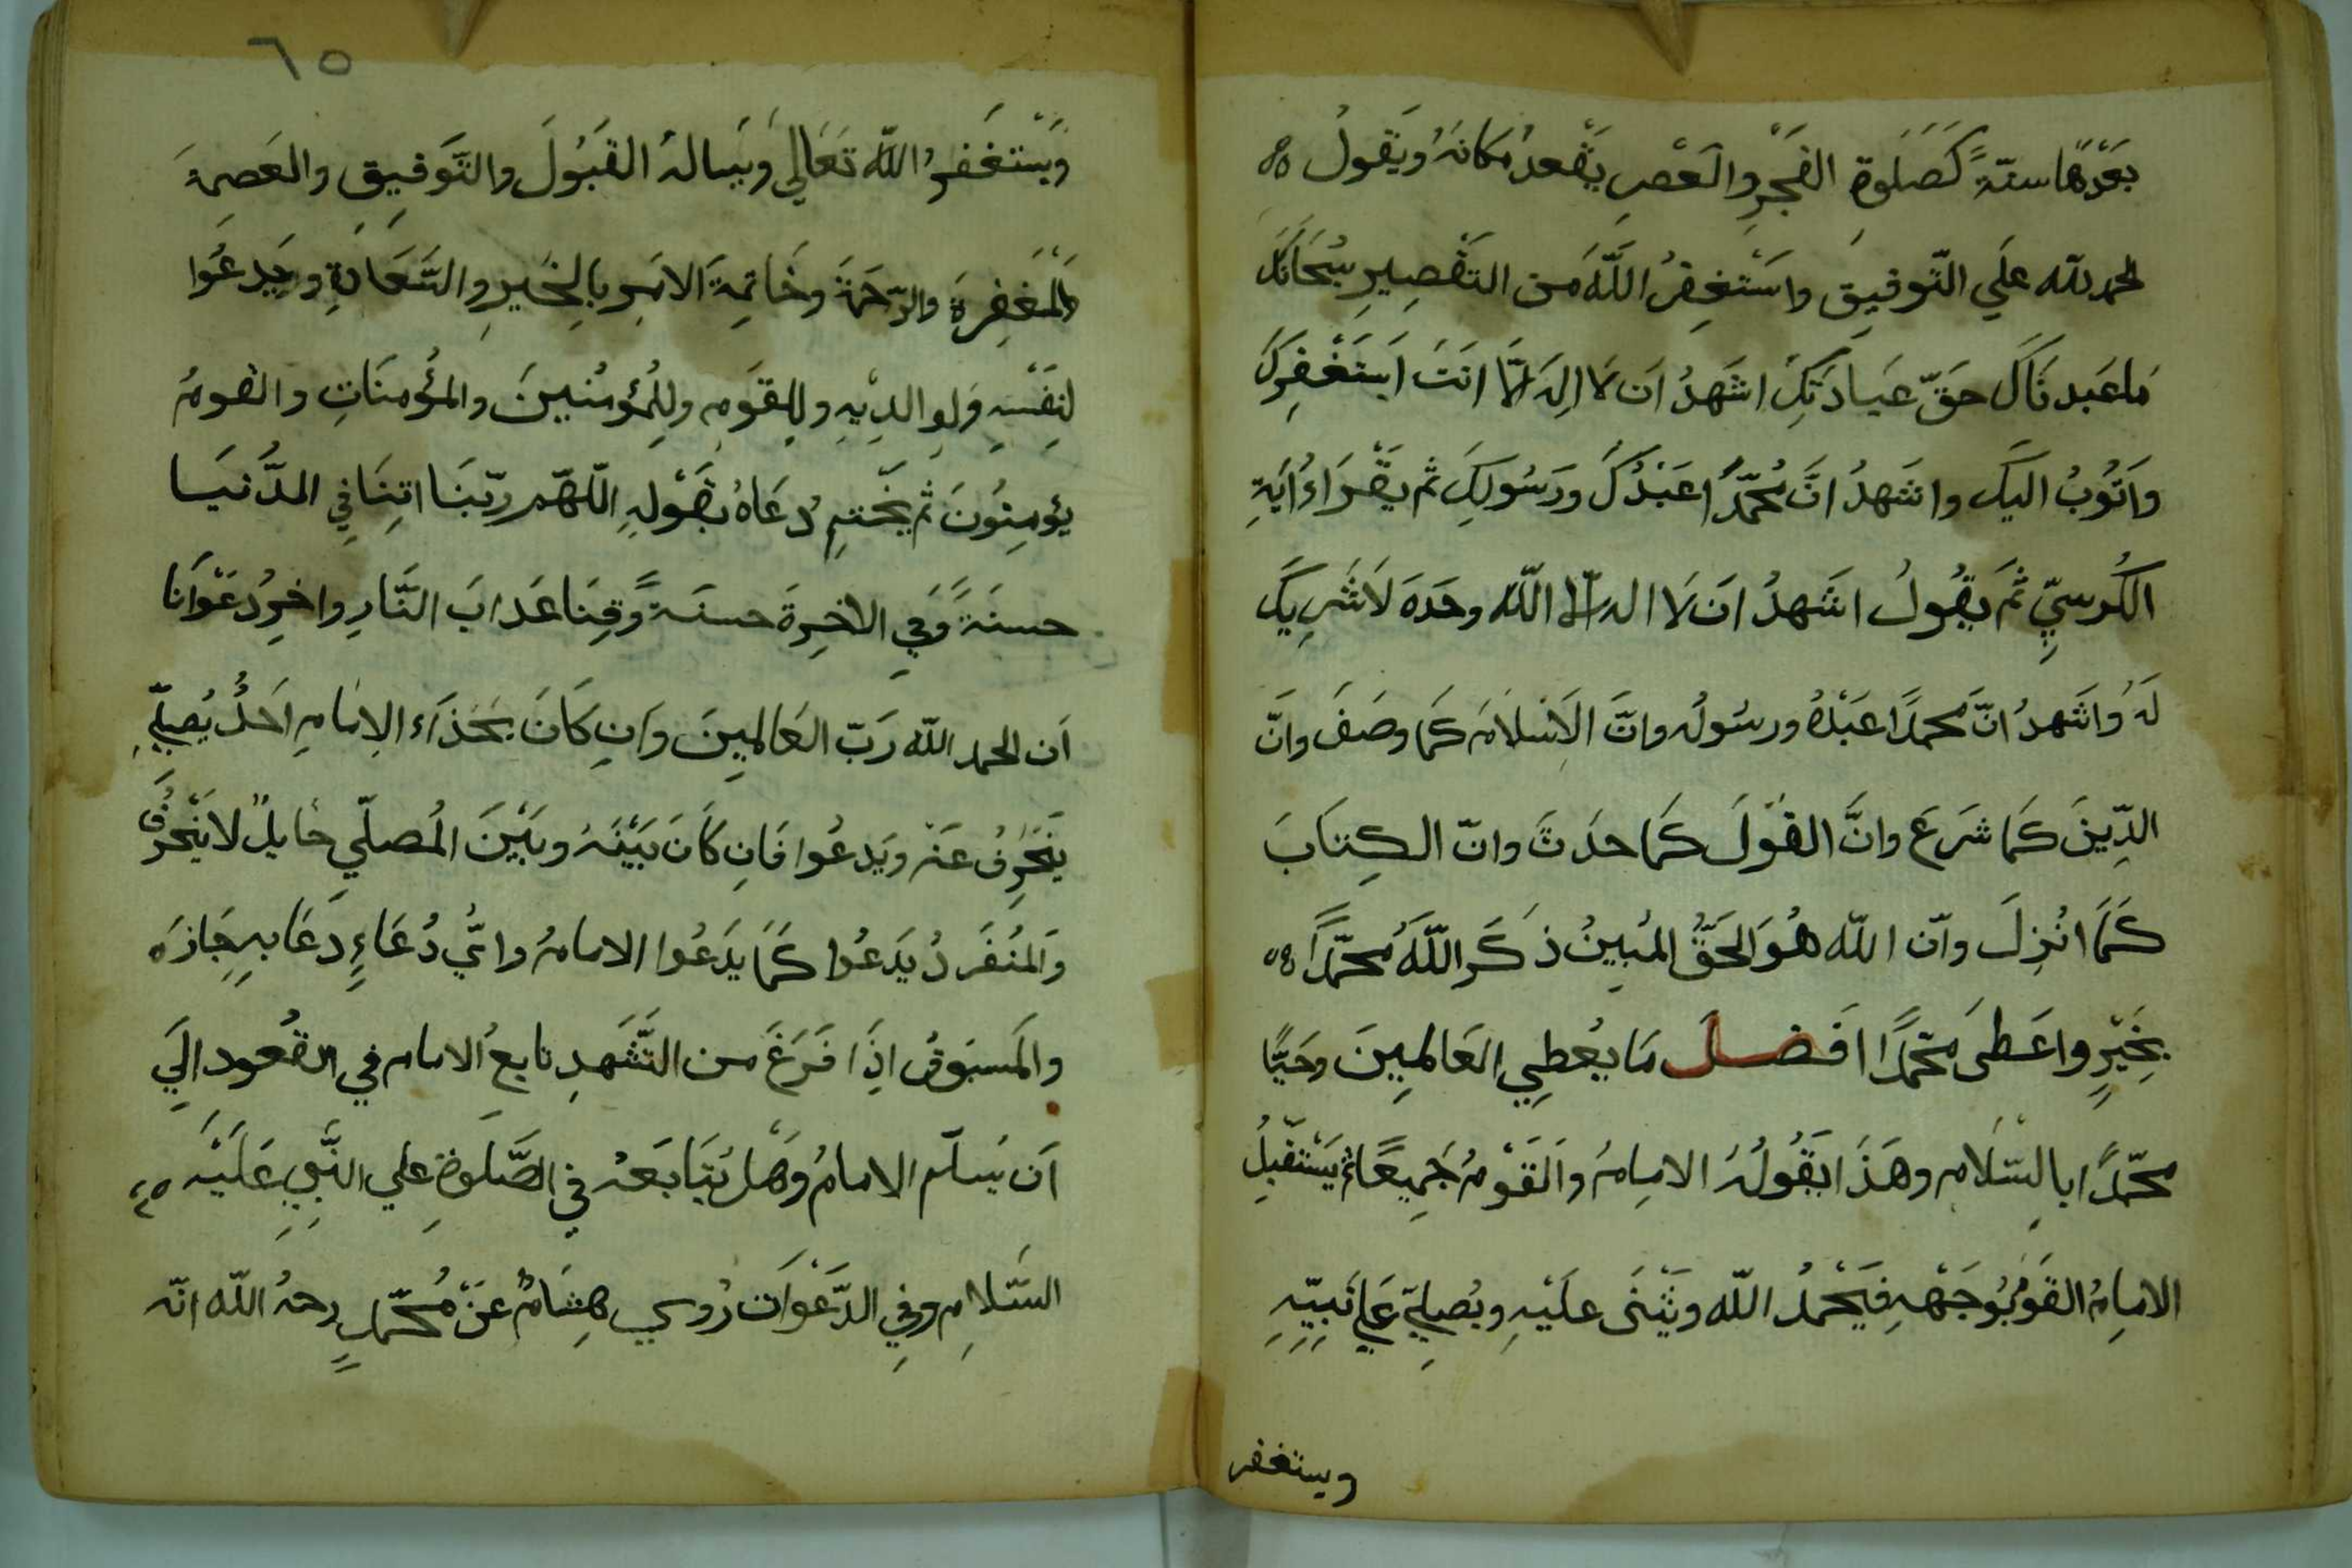 بَعْدَهَا سنّةً كَصَلَوةِ الفَجْرِ والعَصْرِ يَقْعدُ مكَانَهُ ويَقولُ
الحمد لله علَي التّوفيقِ واسْتَغفِرُ اللّهَ من التقْصِيرِ سُبْحَانَكَ
مَا عَبد نَاكَ حقّ عبَادَتِكَ اشَهدُ ان لَا الهَ الّا انتَ اَستَغْفِركَ
وَاتُوبُ اليكَ واشَهدُ انَّ مُحمّدًا عَبْدُكَ ورَسُولكَ ثم يَقْرَاءُ ايَةِ
الكُرسيِّ ثُمَ يقُولُ اشَهدُ ان لَا اله الّا اللّه وحدَهَ لَا شَرِيكَ
لَهُ وَاشَهدُ انّ محمدًا عَبْدُهُ ورسُولُه وانَّ الاسْلَامَ كَمَا وصَفَ وانَّ
الدِّينَ كَمَا شرَعَ وانَّ القَوْلَ كَمَا حدَثَ وانّ الكِتَابَ
كَمَا انُزِلَ وانّ اللّه هُوَ الحَقُّ المُبينُ ذكَرَ اللّهَُ محمّدًا
بخَيْرٍ واعَطىَ محمّدًا افَضلَ مَا يُعطِي العَالمِينَ وحَيَّا
محمّدًا بالسّلَام وهَذَا يَقُولُهُ الامِامُ والقَوْمُ جَمِيعًا ثم يَسْتَقبِلُ
الامِامُ القَوْمُ بُوجَهْهِ فيَحْمدُ اللّه ويَثْنَى علَيْهِ ويُصلِيّ عَلي نَبِيّهِ
ويستغفر
٦٥
وَيَسْتغَفرُ اللّه تَعَالي وَيَسالهُ القَبُولَ والتَّوفيقِ والعَصِمَةَ
والمَغفِرةَ والرّحَمةَ وخَاتِمةَ الامَرِ بالِخَيرِ والسَّعَادةِ ويَدعُوا
لنِفَسْهِ وَلوِ الدِيْهِ وللِقَومِ ولِلمُؤمنُينَ والمؤُمنَاتِ والقومُ
يؤمِنوُنَ ثم يَختِم دُعَاهُ بقَوْلِهِ اللّهّم ربّنَا اتِنَا في الدُّنيَا
حسنَةً وَفيِ الاخرِةَ حسنَةً وَّقِنَا عَذابَ النَّارِ واخرُ دعَوْانَا
اَن الحمد اللّه رَبّ العَالمِينَ وَانِ كَانَ بحَذَآء الاِمَامِ اَحدٌ يُصلِّي
يَنحَرفُ عَنْه ويَدعُوا فَانِ كَانَ بَيْنَهُ وبَيْنَ المُصلّي حَايلٌ لا يَنْحرَفُ
وَالمنُفَردُ يَدعُوا كَمَا يَدعُوا الامامُ وايُّ دُعَاءٍ دَعَا بهِ جَازَه
والمَسبَوقُ اذِا فَرَغَ من التَّشَهدِ تابعُ الامام في القعُود اليَ
اَن يَسلّم الامامُ وهَلْ يُتَابَعهُ في الصَّلَوةِ علي النَّبِي عَلَيْه
السَّلامِ وفيِ الدَّعَوْات رُوي هِشَامٌ عَنْ مُحمّدٍ رحمهُ اللّه انّه